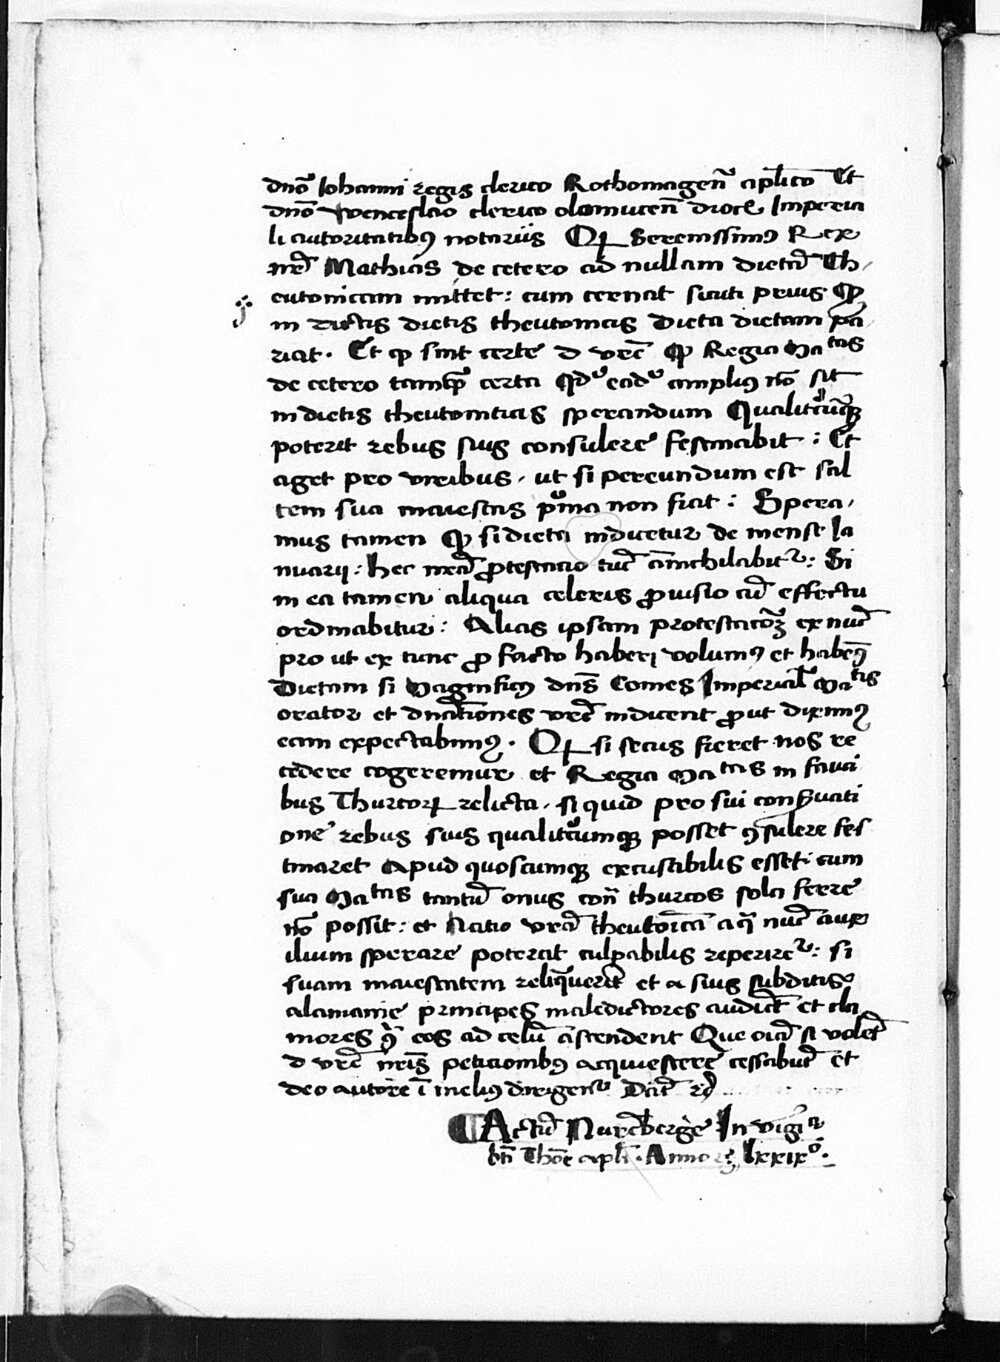 dnō Iohanni regis clerico Rothomageñ apl̄ico Et
dnō Wenceslao clerico olomuceñ dioc̄ Imperia
li autoritatibꝰ notariis Qꝫ Serenissimꝰ Rex
nr̄ Mathias de cetero ad nullam dietā Th
eutonicam mittet: cum cernat sicuti prius ꝙ
in dictis dietis theutonicis Dieta dietam pa
riat. Et ꝙ sint certe d vr̄e ꝙ Regia Matas
de cetero tamꝙ certa amplius nō sit
in dietis theutonicis sperandum Qualitercūqꝫ
poterit rebus suis consulere festinabit: Et
aget pro viribus, ut si pereundum est sal
tem sua maiestas pͥma non fiat: Spera
mus tamen ꝙ si dieta indicetur de mense Ia
nuarij: hec nrā ꝓtestacio tūc añichilabitᷣ: Si
in ea tamen aliqua celeris ꝓuisio cū effectu
ordinabitur: Alias ipsam protestacōꝫ ex nūc
pro ut ex tunc ꝓ facto haberi volumꝰ et habemꝰ
Dietam si Magnificꝰ dns̄ Comes Imperial̄ Matis
orator et dn̄ationes vr̄e indicent ꝓut diximꝰ
eam expectabimꝰ. Qꝫ si secus fieret nos re
cedere cogeremur et Regia Matas in fauci
bus Thurcoꝝ relicta, si quid pro sui conẜuati
one rebus suis qualitercumqꝫ posset ꝯsulere fes
tinaret Apud quoscumqꝫ excusabilis esset: cum
sua Matas tantū onus con̄ thurcos sola ferre
nō possit: et Natio vrā theutoīca a qͣ nūc aux
ilium sperare poterat culpabilis reperiretᷣ: si
suam maiestatem reliquerīt et a suis subditis
alamanie principes maledictores audiēt et cla
mores qͥ eos ad celū ascendent Que oīa si volēt
d vr̄e nrīs peticionibꝰ acquiescere cessabūt et
deo autore ī melius dirigentᷣ Datꝫ ꝛc̄
Actū Nurēberge In vigīa
bt̄i Thōe apl̄i. Anno ꝛc̄ lxxixº.